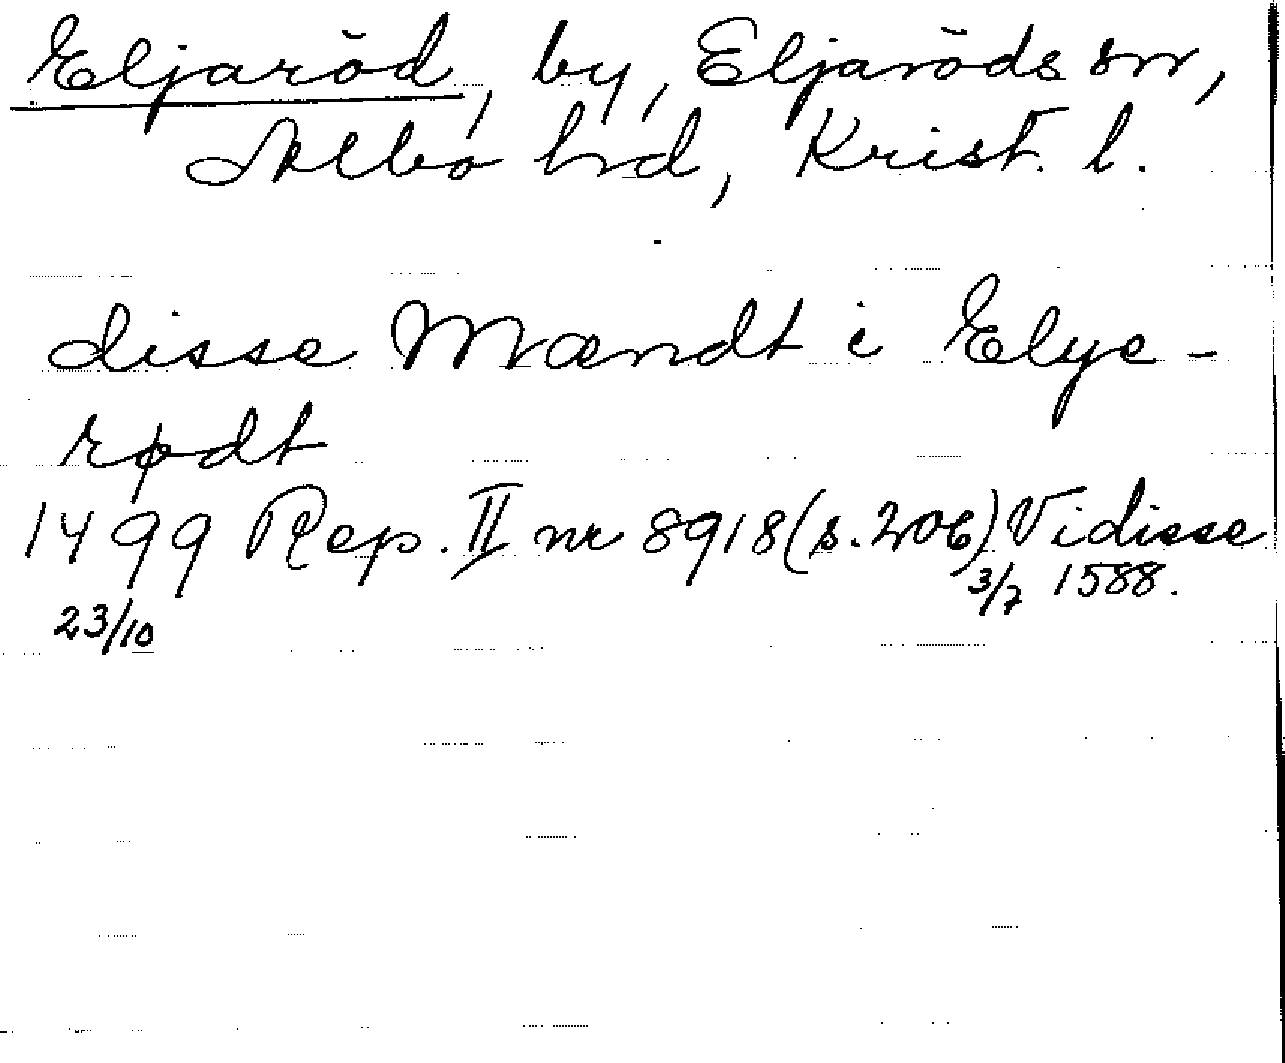 Eljaröd, by, Eljaröds sn,
Albo hrd, Krist. l.
disse Mændt i Elye-
rødt
1499 Rep. II nr 8918 (s. 206) Vidisse
23/10 3/7 1588.